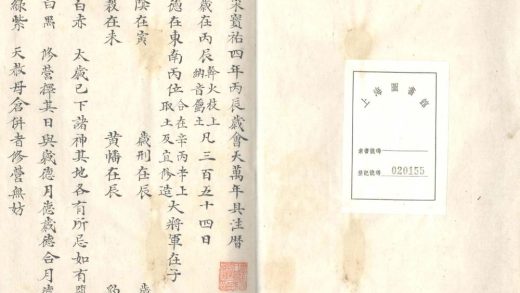 宋寶祐四年丙辰歲會天萬年具注曆
歲在丙辰 幹火枝土 納音屬土 凡三百五十四日
德在東南丙位 合在辛丙辛上 取土及宜修造 大將軍在子
陰在寅 歲刑在辰 歲
殺在未 黃幡在辰 豹
白赤 太歲已下諸神其地各有所忌如有
白黑 修營擇其日與歲德月德歲德合月
綠紫 天赦母倉併者修營無妨
上海圖書館
索書號碼
登記號碼 020155